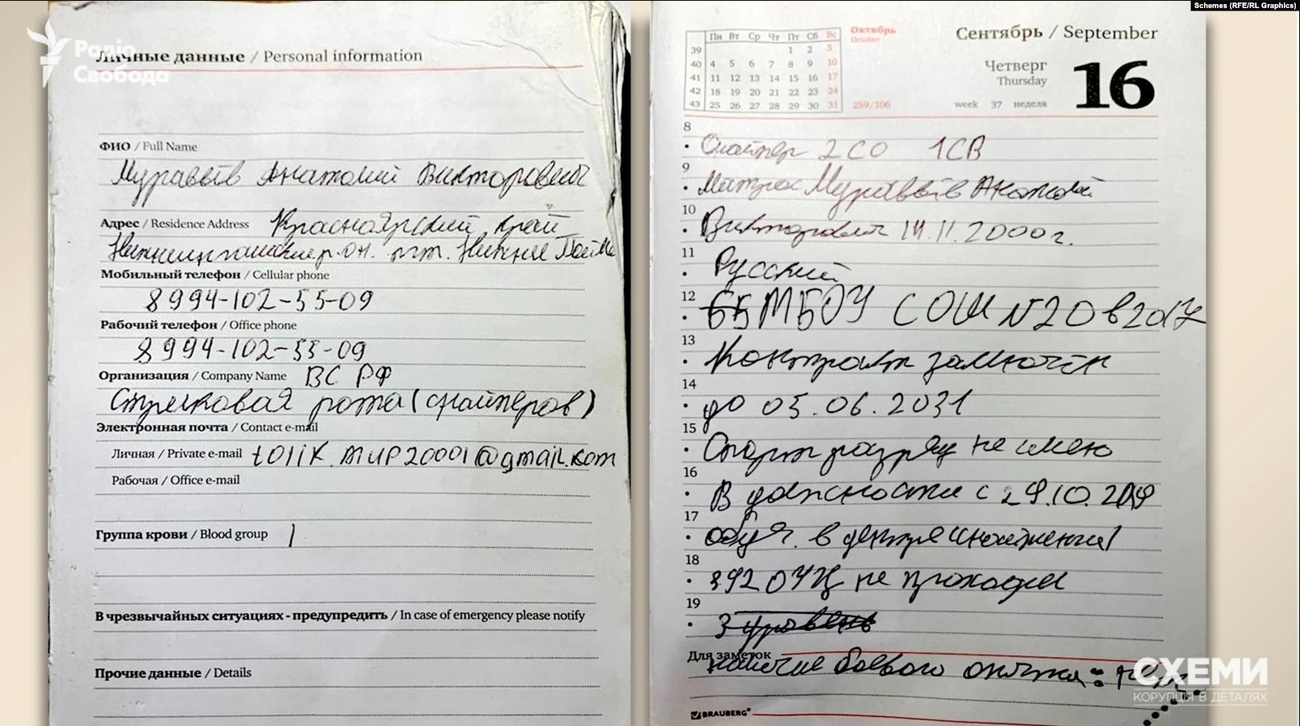 Schemes (RFE/RL Graphics)
Радіо
Свобода
Личные данные / Personal information
ФИО / Full Name
Муравьёв Анатолий Викторович
Адрес / Residence Address Красноярский край
р.он. пгт. Нижняя Пойма
Мобильный телефон / Cellular phone
8994-102-55-09
Рабочий телефон / Office phone
8994-102-55-09
Организация / Company Name ВС РФ
Стрелковая рота (снайперов)
Электронная почта / Contact e-mail
Личная / Private e-mail tolik.mur20001@gmail.kom
Рабочая / Office e-mail
Группа крови / Blood group 1
В чрезвычайных ситуациях - предупредить / In case of emergency please notify
Прочие данные / Details
Октябрь
October
Пн Вт Ср Чт Пт Сб Вс
39 1 2 3
40 4 5 6 7 8 9 10
41 11 12 13 14 15 16 17
42 18 19 20 21 22 23 24
43 25 26 27 28 29 30 31
259/106
Сентябрь / September
Четверг
Thursday
week 37 неделя
16
8
Снайпер 2СО 1СВ
9
Матрос Муравьёв Анатолий
10
Викторович 14.11.2000г.
11
Русский
12
МБОУ СОШ N20 в 2017
13
Контракт заключён
14
до 05.06.2031
15
Спорт разряд не имею
16
В должности с 29.10.2019
17
в центре
18
392 ОУЦ не проходил
19
3 уровень
Для заметок
наличие боевого опыта:
BRAUBERG
СХЕМИ
КОРУПЦІЯ В ДЕТАЛЯХ